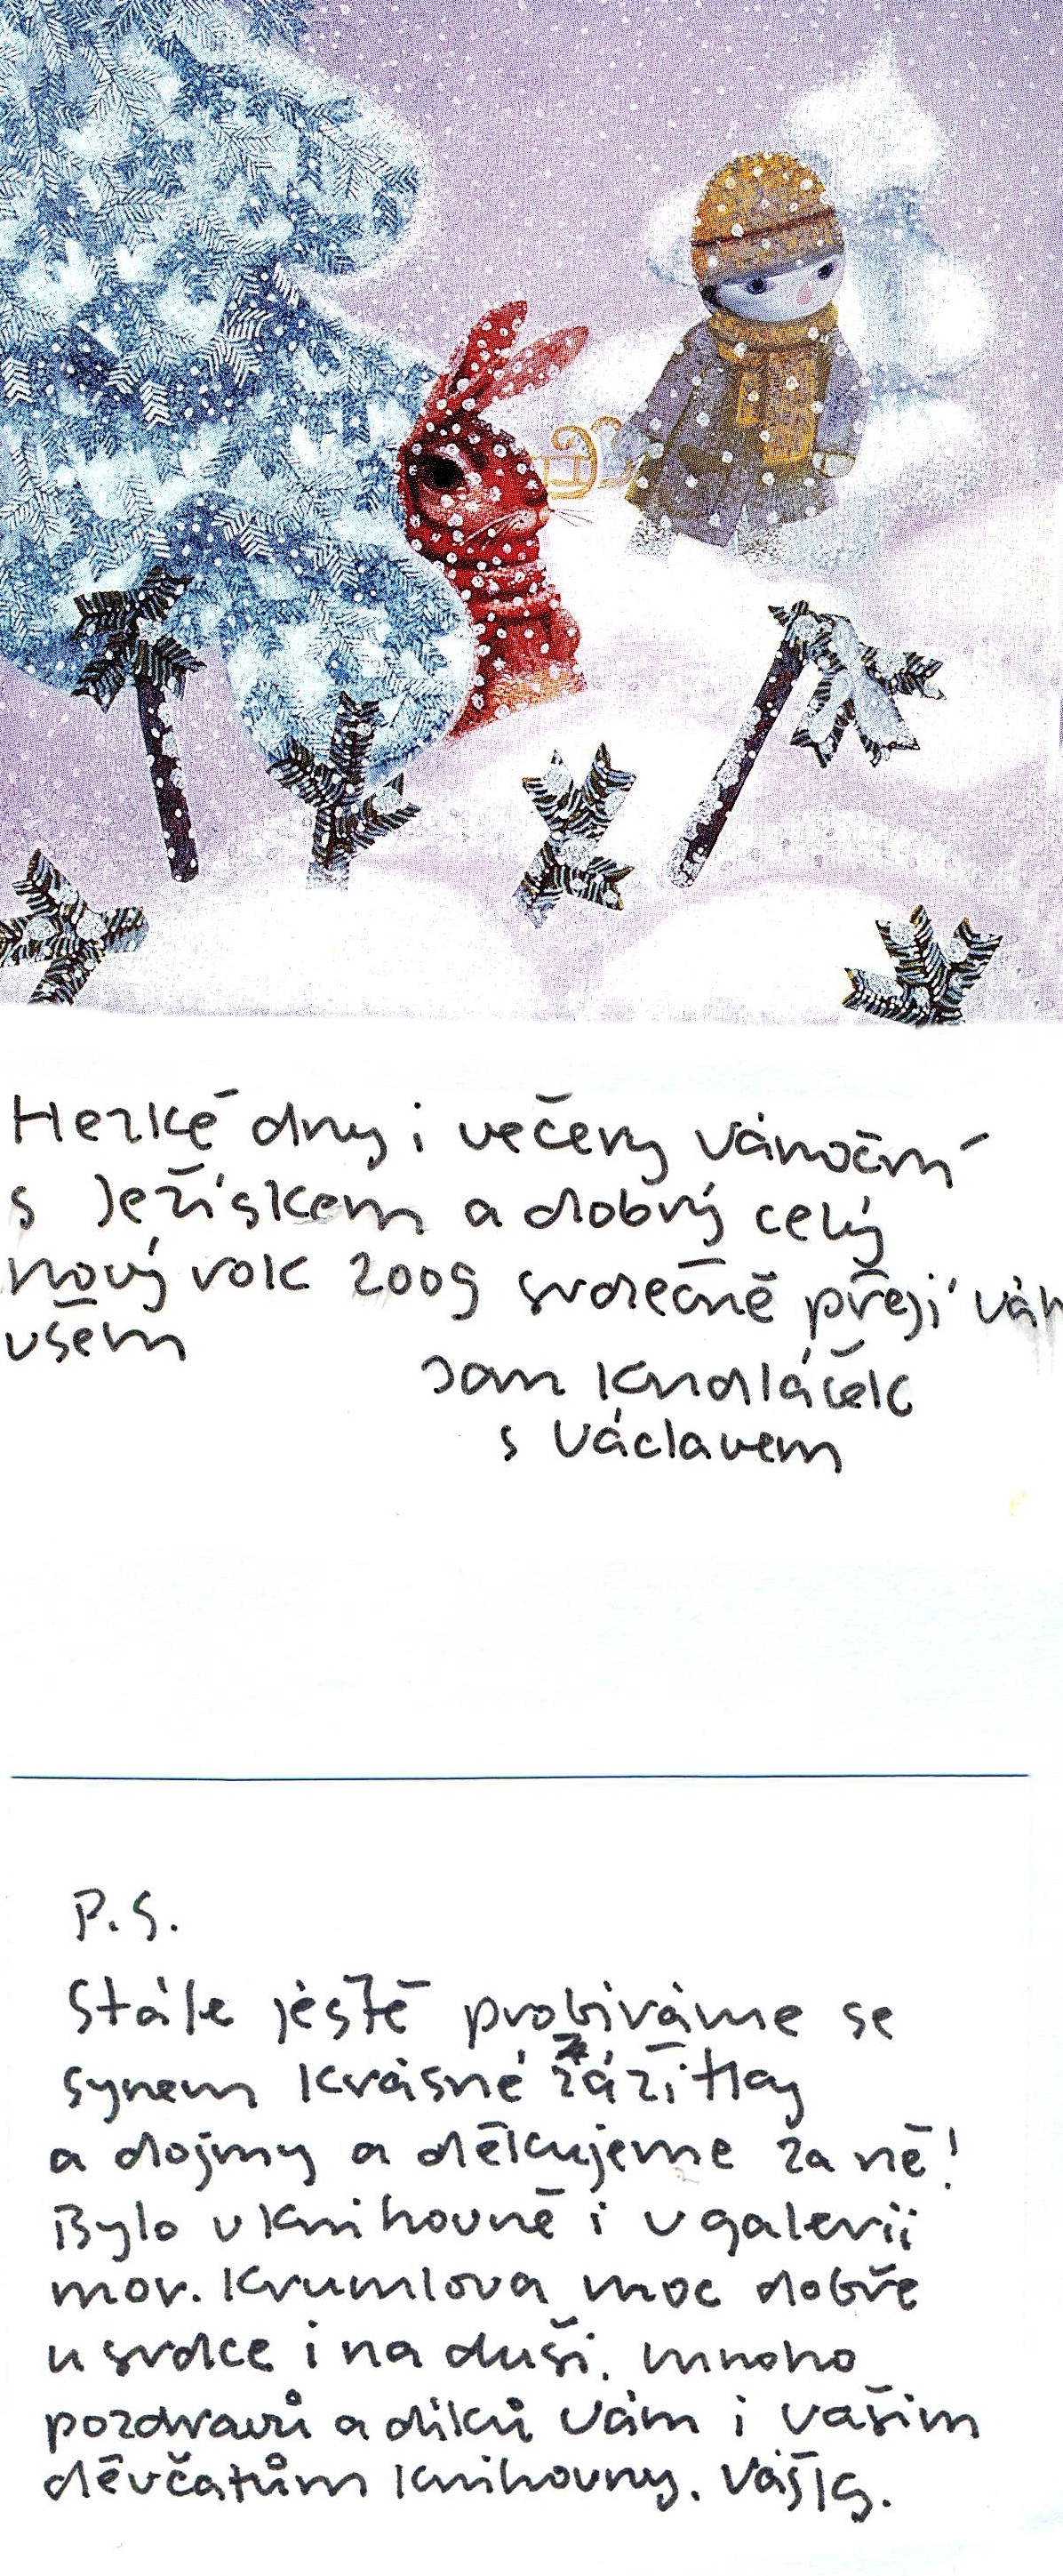 Hezké dny i večery Vánoční
s Ježíškem a dobrý celý
nový rok 2009 srdečně přejí vám
všem
Jan Kudláček
s Václavem
P.S.
Stále ještě probíváme se
synem krásné zážitky
a dojmy a děkujeme za ně!
Bylo v knihovně i v galerii
mor. Krumlova moc dobře
u srdce i na duši. Mnoho
pozdravů a díků Vám i vašim
děvčatům knihovny.